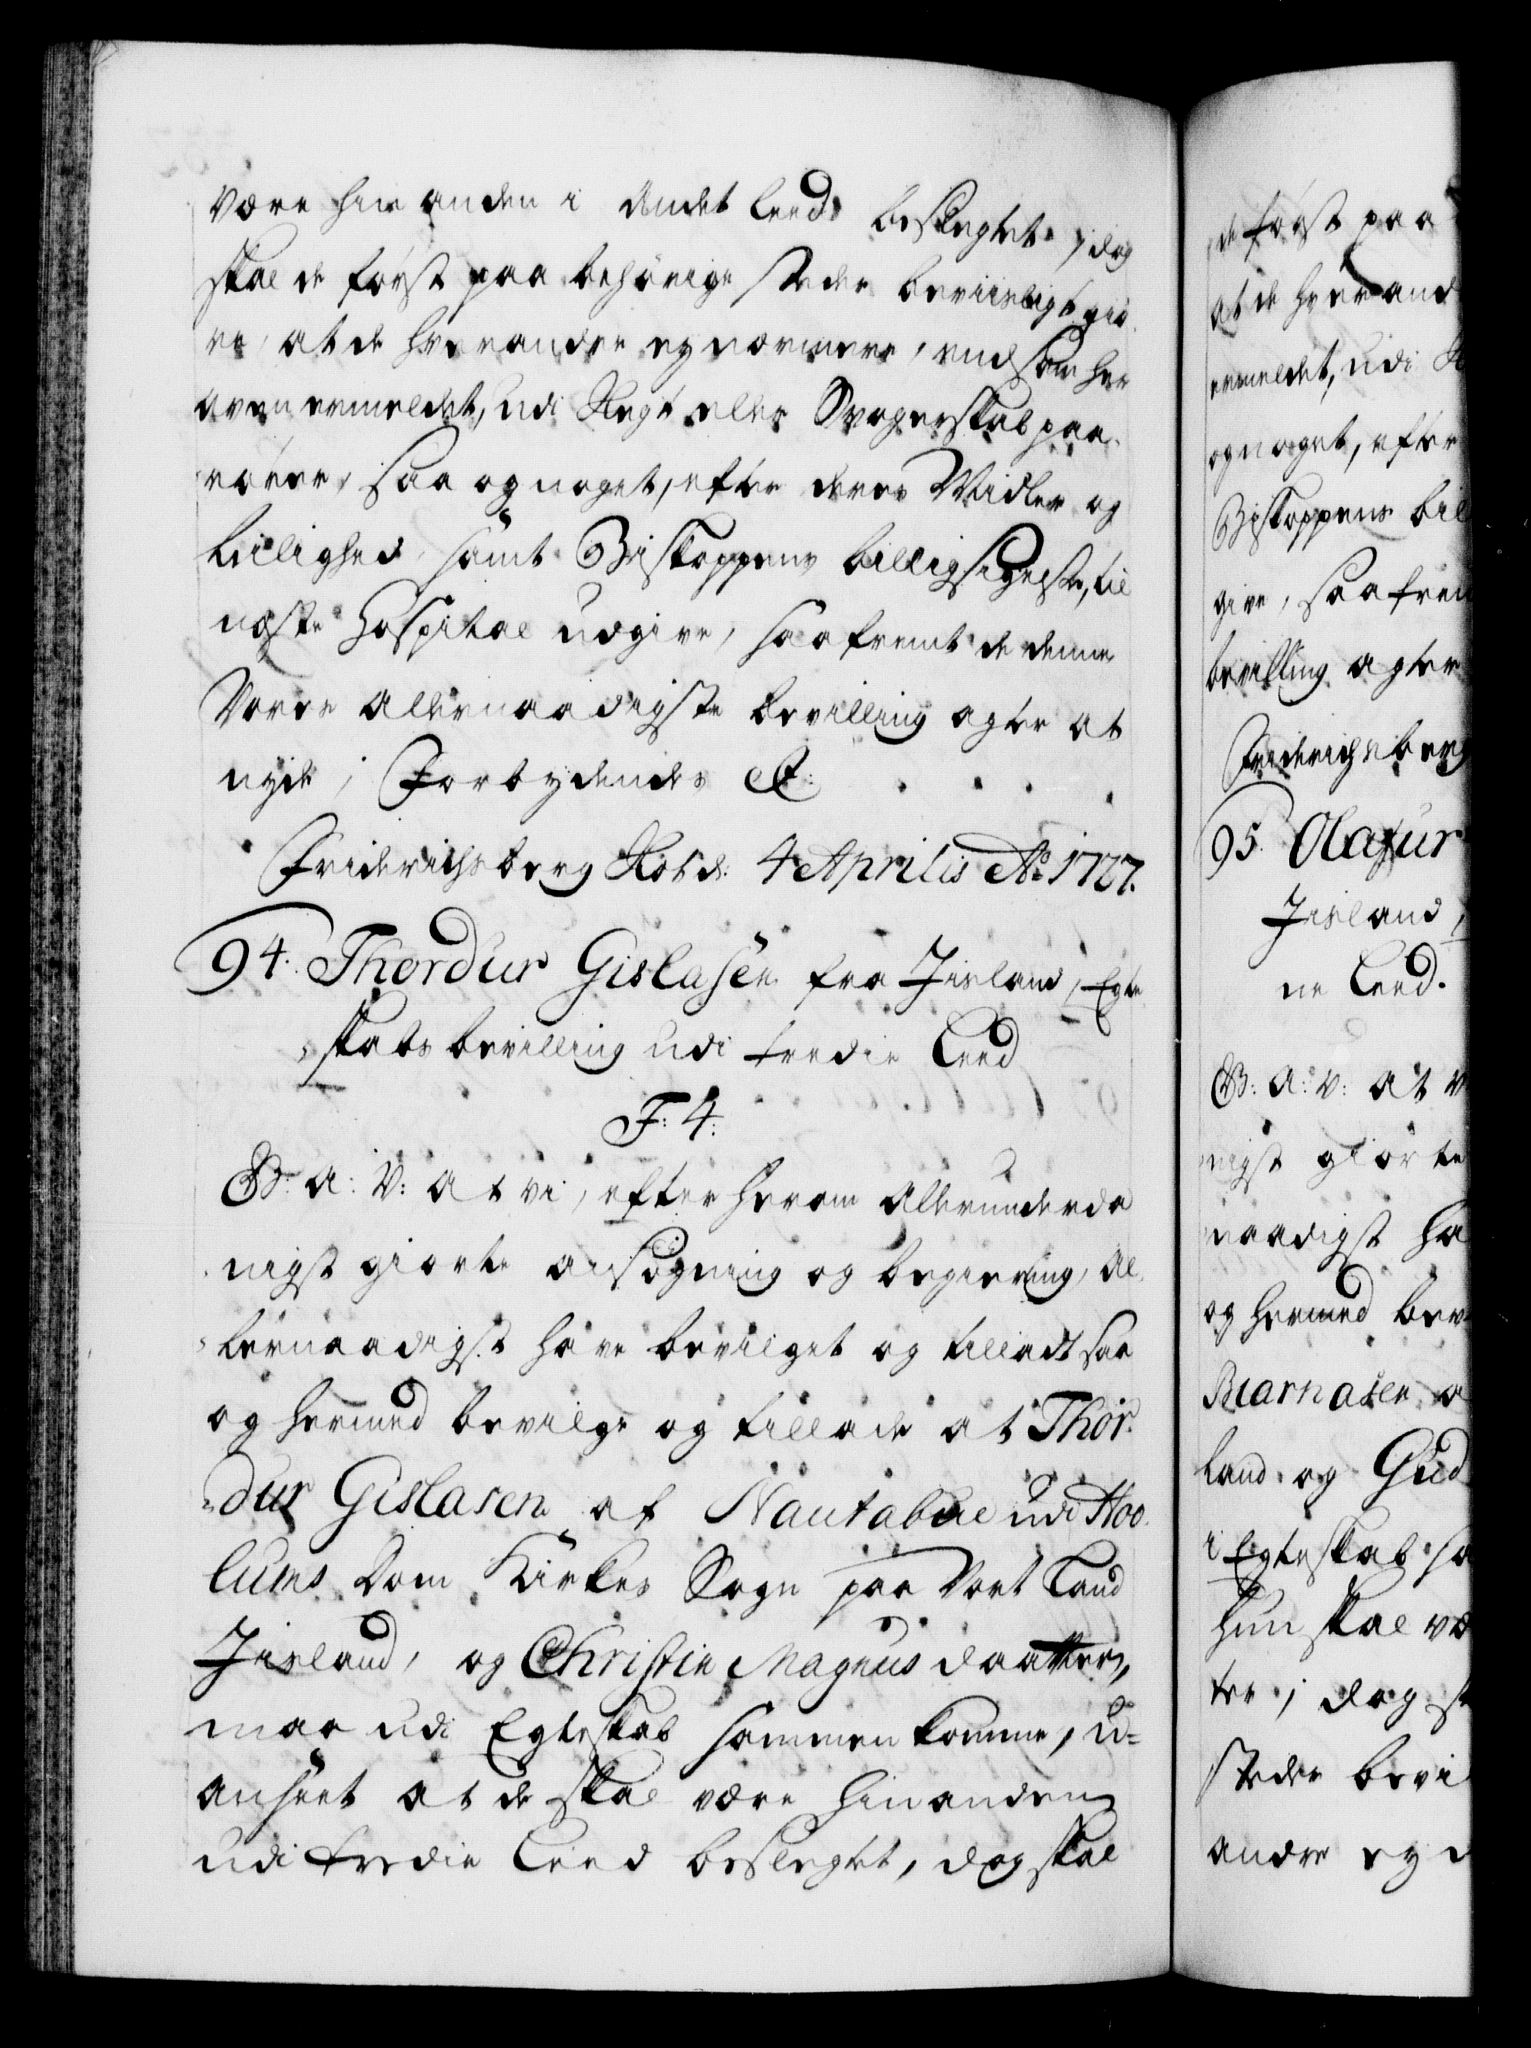 være hin anden i Andet Leed beslegtet, dog
skal de først paa behörige stæder beviisligt giö-
re, at de hverandre ey nærmere, end som her
oven ermeldet, udi Slegt eller Svogerskab paa-
rörer, saa og noget, efter deres Midler og
leilighed, samt Biskoppens billigsigelse, til
næste Hospital udgive, saafremt de denne
Vores allernaadigste bevilling agter at
nyde; Forbydendes &:
Friderichsberg Slot d: 4 Aprilis Ao 1727.
94. Thordur Gislasen fra Jisland, Egte-
skabs bevilling udi tredie Leed
F: 4:
G: A: V: At vi, efter herom Allerunderda-
nigst giorte ansögning og begiering, Al-
lernaadigst have bevilget og tilladt saa
og hermed bevilge og tillade at Thor-
dur Gislasen af Nautabue udi Hoo-
lums Dom Kirkes Sogn paa Vort Land
Jisland, og Christin Magnus daatter,
maa udi Egteskab sammen komme, u-
anseet at de skal være hinanden
udi tredie Leed beslegtet, dog skal
de först paa
at de hverand
ermeldet, udi Sl
og noget, efter
Biskoppens bil
give, saa frem
bevilling agter
Friderichsberg
95. Olafur
Jisland,
ne Leed.
G: A: V: At v
nigst giorte
naadigst ha
og hermed bev
Biarnasen o
land og Gud
i Egteskab sa
hun skal væ
ter; dog sk
stæder bevi
andre ey